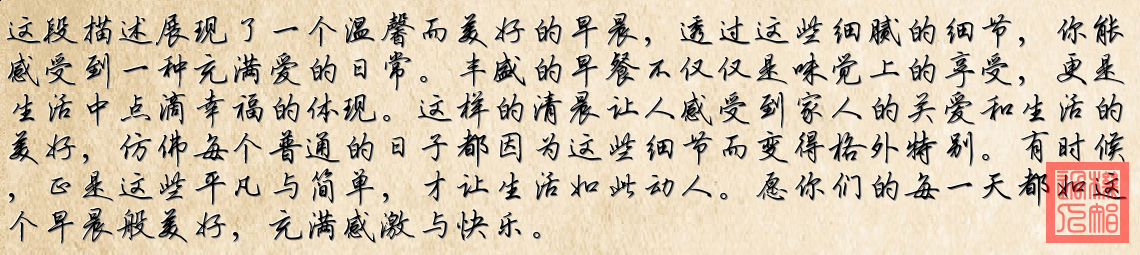 这段描述展现了一个温馨而美好的早晨，透过这些细腻的细节，你能
感受到一种充满爱的日常。丰盛的早餐不仅仅是味觉上的享受，更是
生活中点滴幸福的体现。这样的清晨让人感受到家人的关爱和生活的
美好，仿佛每个普通的日子都因为这些细节而变得格外特别。有时候
，正是这些平凡与简单，才让生活如此动人。愿你们的每一天都如这
个早晨般美好，充满感激与快乐。